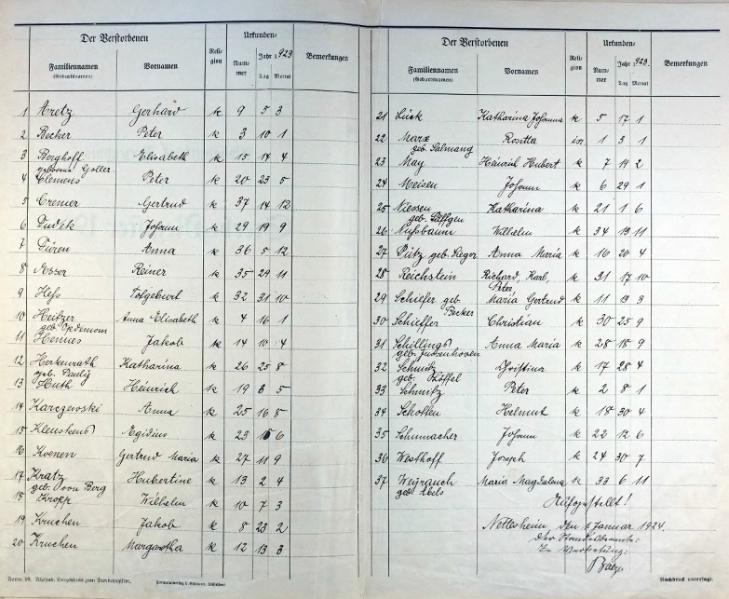 Der Verstorbenen
Familiennamen
(Geburtsnamen)
Vornamen
Reli-
gion
Urkunden-
Num-
mer
Jahr 1923
Tag Monat
Bemerkungen
1 Aretz Gerhard k 9 5 3
2 Becher Peter k 3 10 1
3 Berghoff Elisabeth k 15 14 4
geborene Goller
4 Clemens Peter k 20 23 5
5 Cremer Gertrud k 37 14 12
6 Dudek Johann k 29 19 9
7 Düren Anna k 36 5 12
8 Reiner k 35 29 11
9 Hess Totgeburt k 32 31 10
10 Heitzer Anna Elisabeth k 4 16 1
11 Hennes Jakob k 14 10 4
12 Herkenrath Katharina k 26 25 8
geb. Pauly
13 Huth Heinrich k 19 8 5
14 Karczewski Anna k 25 16 8
15 Aegidius k 23 18 6
16 Koenen Gertrud Maria k 27 11 9
17 Kratz Hubertine k 13 2 4
geb. von Berg
18 Kropp Wilhelm k 10 7 3
19 Kruchen Jakob k 8 23 2
20 Kruchen Margaretha k 12 13 3
Der Verstorbenen
Familiennamen
(Geburtsnamen)
Vornamen
Reli-
gion
Urkunden-
Num-
mer
Jahr 1923
Tag Monat
Bemerkungen
21 Lück Katharina Johanna k 5 17 1
22 Marx Rosetta isr 1 3 1
geb. Salmang
23 May Heinrich Hubert k 7 14 2
24 Meisen Johann k 6 29 1
25 Niessen Katharina k 21 1 6
geb. Söffgen
26 Nussbaum Wilhelm k 34 13 11
27 Pütz geb. Anna Maria k 16 20 4
28 Reichstein Richard, Karl, k 31 17 10
Peter,
29 Schiefer geb. Maria Gertrud k 11 13 3
Becker
30 Schieffer Christian k 30 25 9
31 Schillings Anna Maria k 28 18 9
geb. Juffenhoven
32 Schmitz Christina k 17 28 4
geb. Röffel
33 Schmitz Peter k 2 8 1
34 Schotten Helmut k 18 30 4
35 Schumacher Johann k 22 12 6
36 Westhoff Joseph k 24 30 7
37 Weyrauch Maria Magdalena k 33 6 11
Aufgestellt!
Nettersheim, den Januar 1924.
Der Standesbeamte:
In Vertretung:
Nachdruck untersagt.